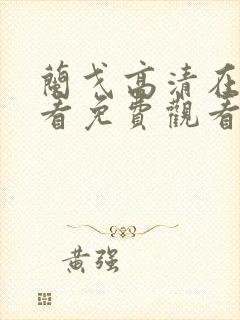 蘭戈高清在
看免費觀看
黃強